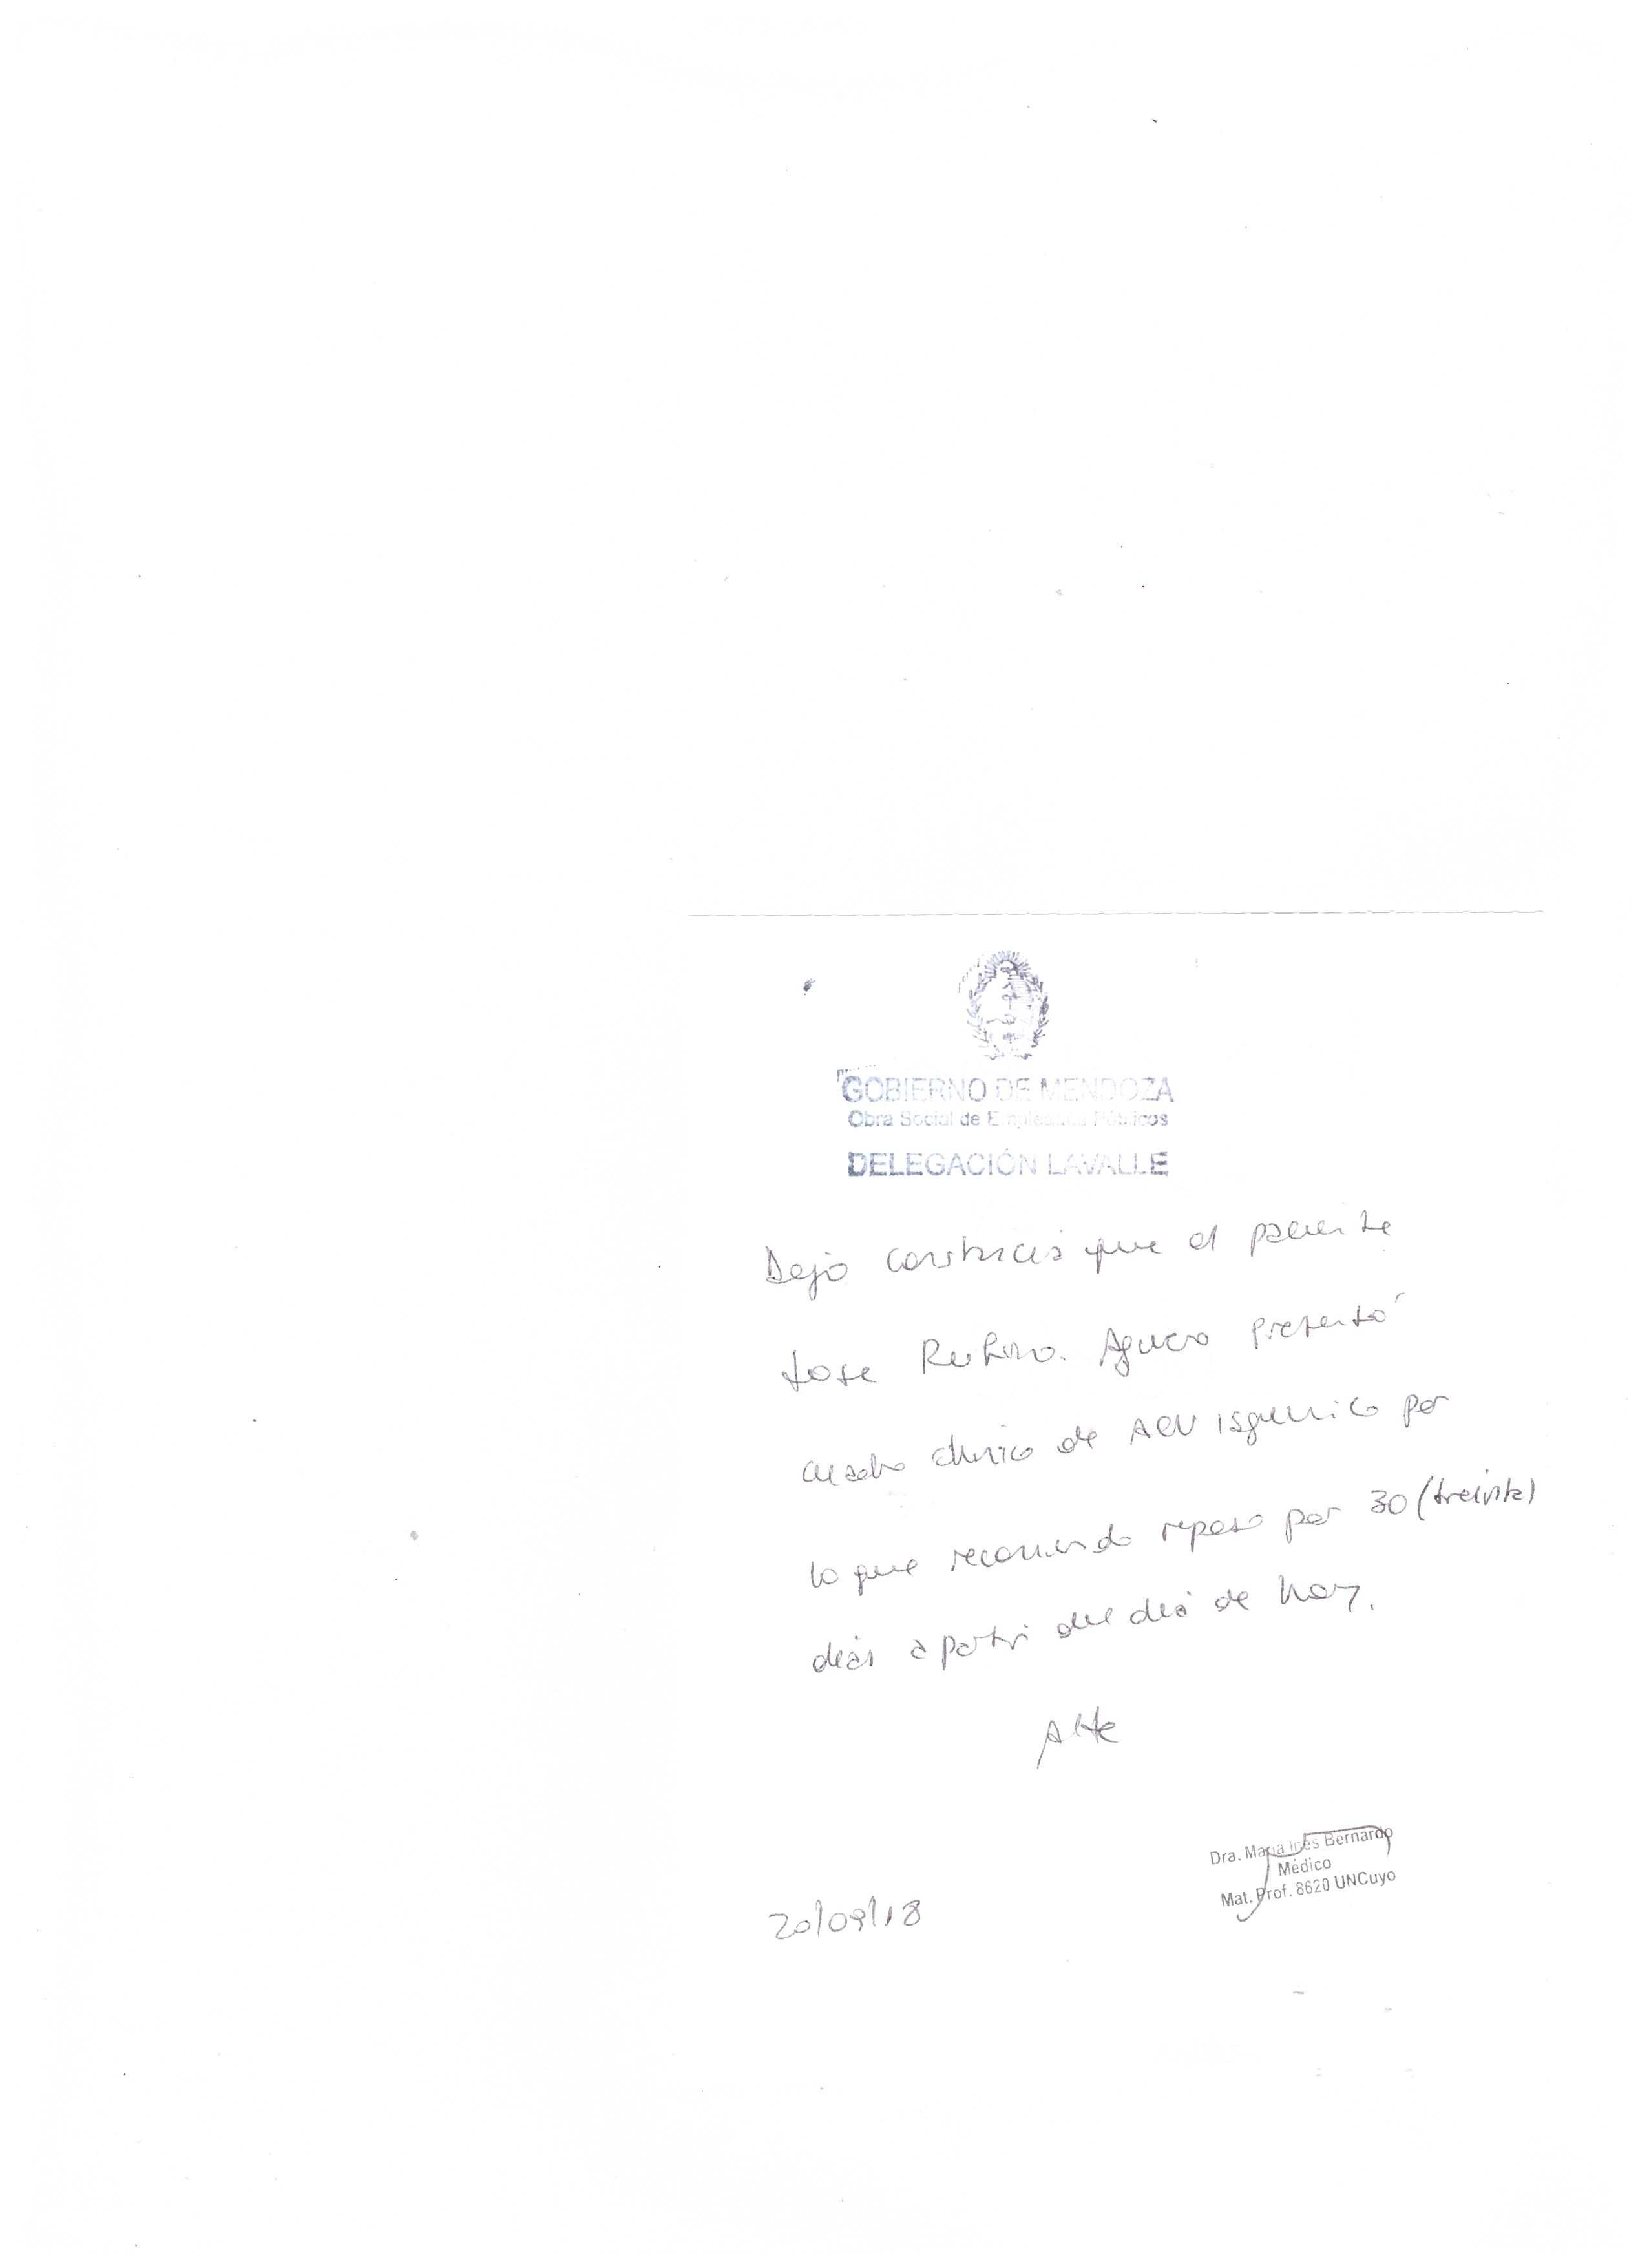 GOBIERNO DE MENDOZA
Obra Social de Empleados Públicos
DELEGACIÓN LAVALLE
Dejo constancia que el paciente
Jose Rufino. Aguero presentó
cuadro clinico de ACV isquemico por
lo que recomiendo reposo por 30 (treinta)
días a partir del día de hoy.
Atte
Dra. Maria Ines Bernardo
Médico
Mat. Prof. 8620 UNCuyo
20/09/18